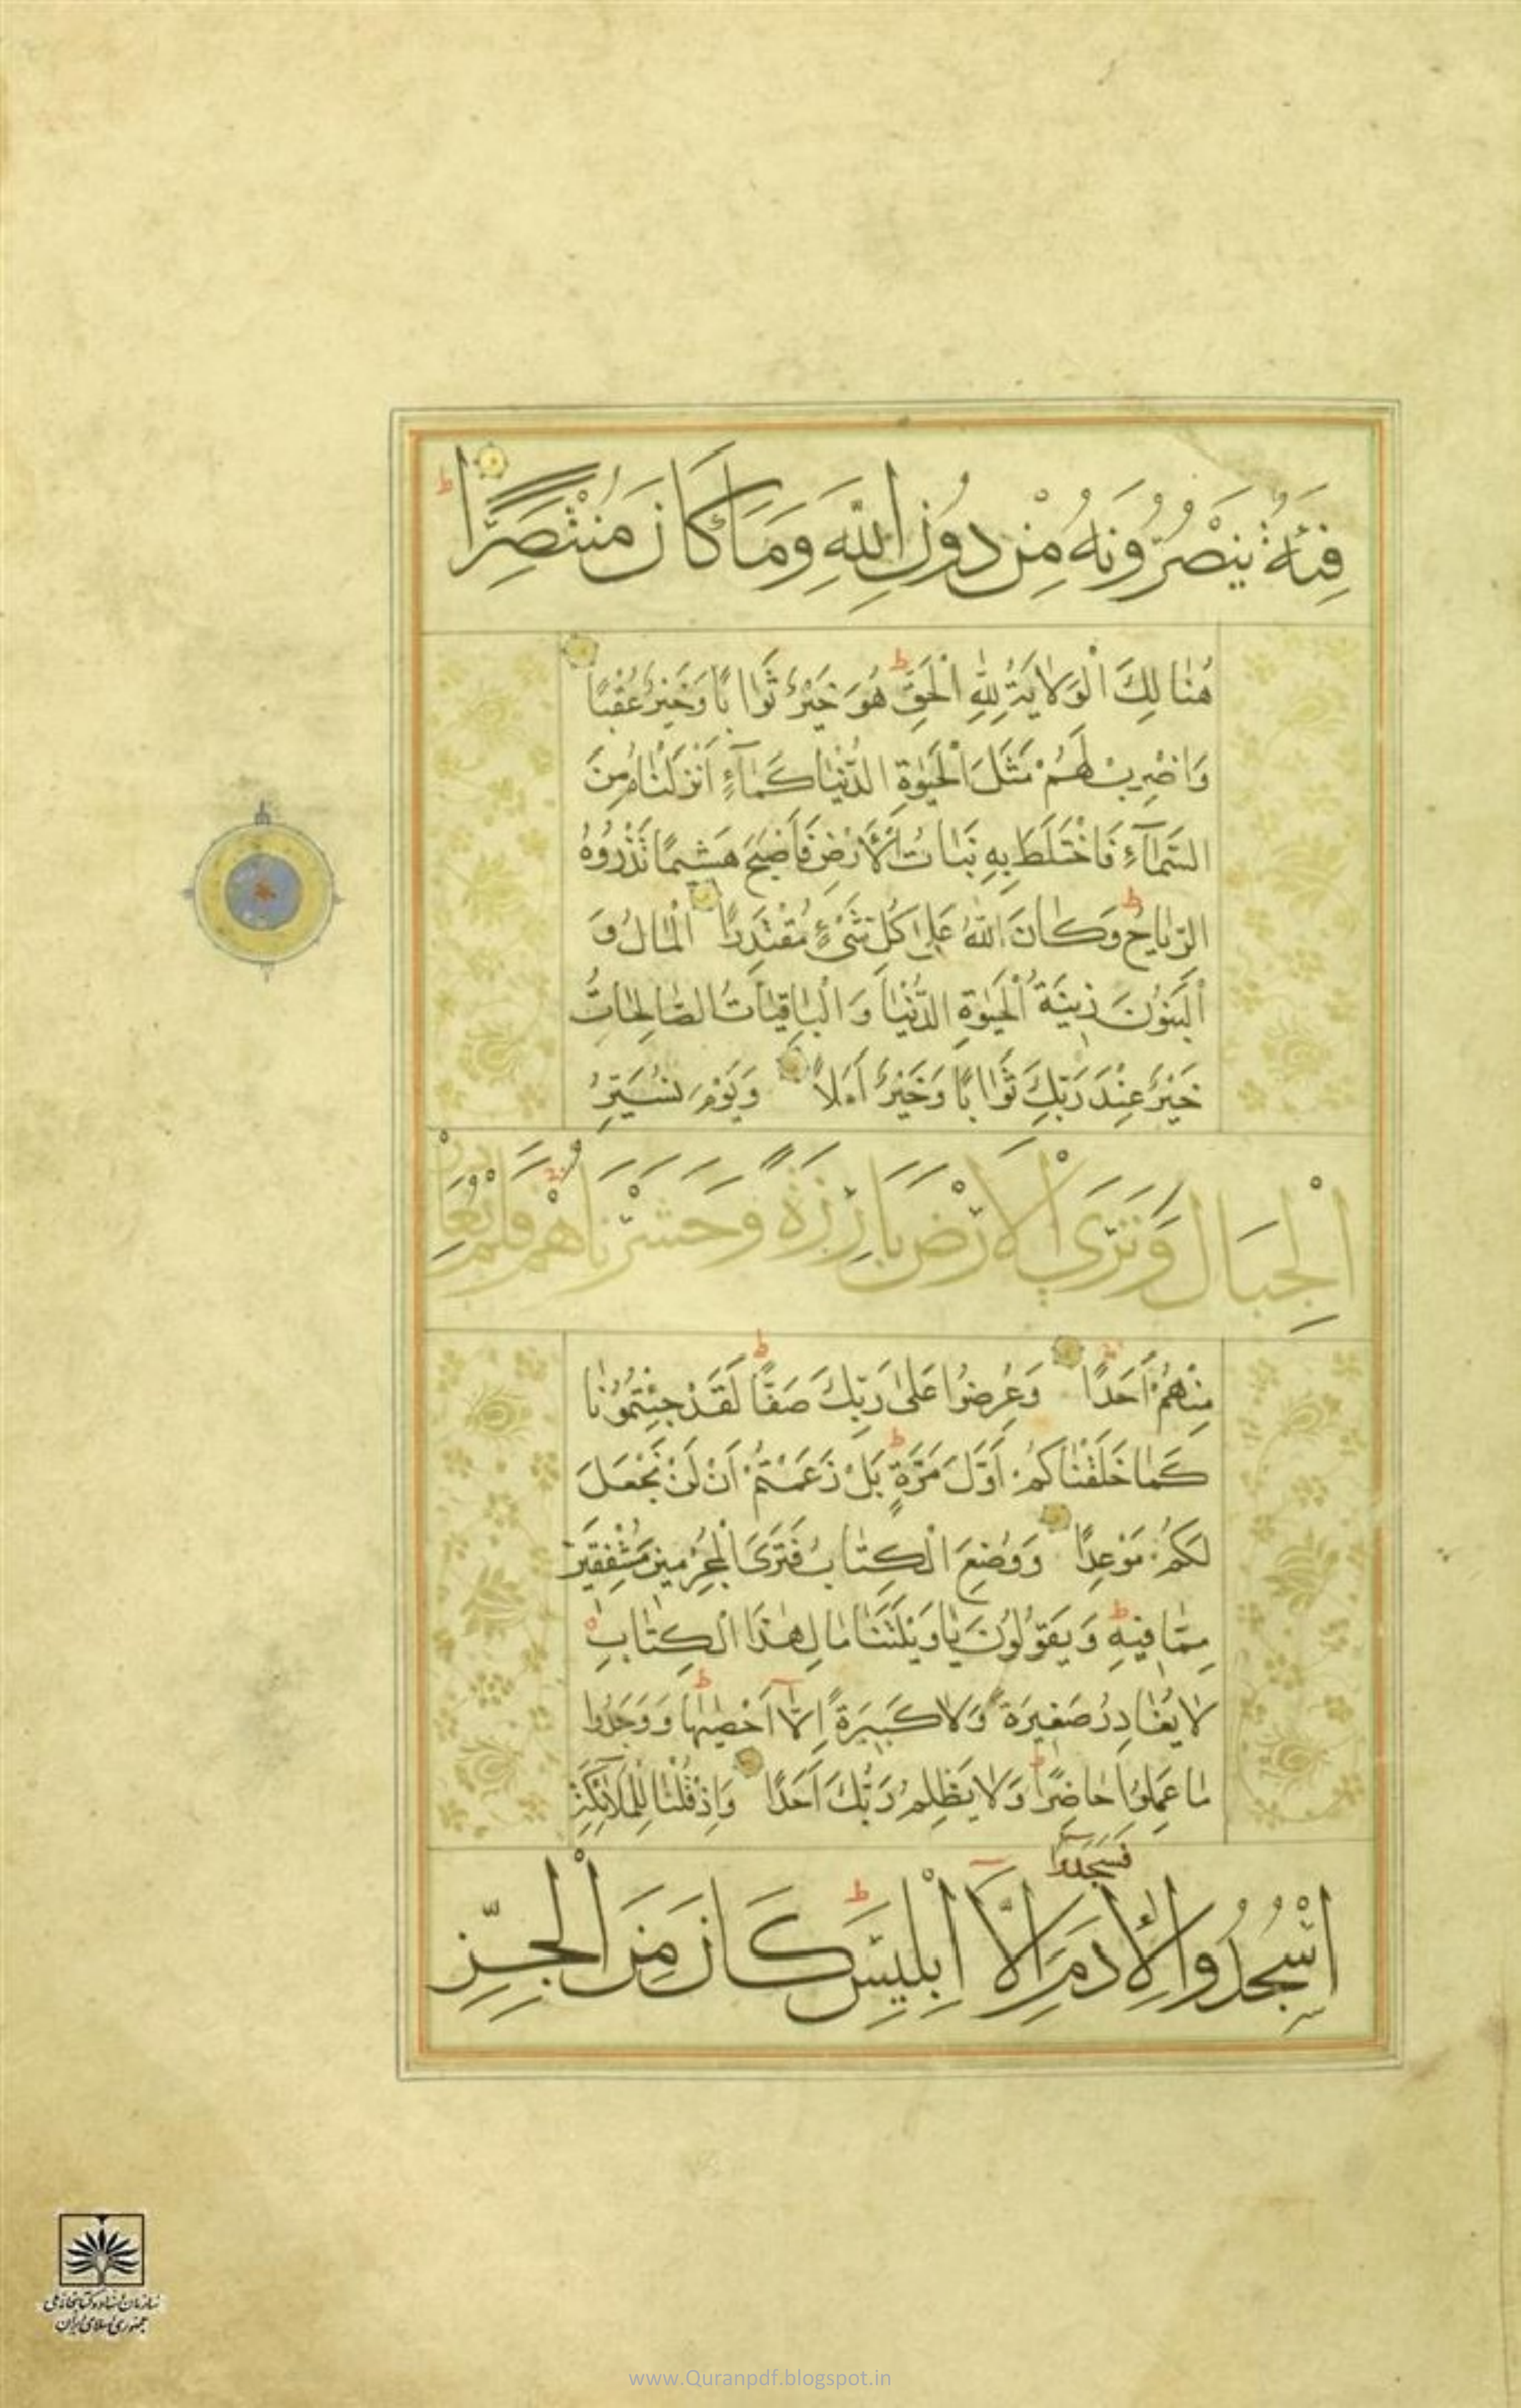 فِئَةٌ يَنْصُرُونَهُ مِنْ دُونِ اللَّهِ وَمَا كَانَ مُنْتَصِرًا ط
هُنَالِكَ الْوَلَايَةُ لِلَّهِ الْحَقِّ ط هُوَ خَيْرٌ ثَوَابًا وَخَيْرٌ عُقْبًا
وَاضْرِبْ لَهُمْ مَثَلَ الْحَيٰوةِ الدُّنْيَا كَمَآءٍ أَنْزَلْنَاهُ مِنَ
السَّمَآءِ فَاخْتَلَطَ بِهِ نَبَاتُ الْأَرْضِ فَأَصْبَحَ هَشِيمًا تَذْرُوهُ
الرِّيَاحُ ط وَكَانَ اللَّهُ عَلَىٰ كُلِّ شَىْءٍ مُقْتَدِرًا الْمَالُ وَ
الْبَنُونَ زِينَةُ الْحَيٰوةِ الدُّنْيَا وَالْبَاقِيَاتُ الصَّالِحَاتُ
خَيْرٌ عِنْدَ رَبِّكَ ثَوَابًا وَخَيْرٌ أَمَلًا وَيَوْمَ نُسَيِّرُ
الْجِبَالَ وَتَرَى الْأَرْضَ بَارِزَةً وَحَشَرْنَاهُمْ فَلَمْ نُغَادِرْ
مِنْهُمْ أَحَدًا وَعُرِضُوا عَلَىٰ رَبِّكَ صَفًّا ط لَقَدْ جِئْتُمُونَا
كَمَا خَلَقْنَاكُمْ أَوَّلَ مَرَّةٍ ط بَلْ زَعَمْتُمْ أَنْ لَنْ نَجْعَلَ
لَكُمْ مَوْعِدًا وَوُضِعَ الْكِتَابُ فَتَرَى الْمُجْرِمِينَ مُشْفِقِينَ
مِمَّا فِيهِ وَيَقُولُونَ يَا وَيْلَتَنَا مَالِ هٰذَا الْكِتَابِ
لَا يُغَادِرُ صَغِيرَةً وَلَا كَبِيرَةً إِلَّا أَحْصٰيهَا ط وَوَجَدُوا
مَا عَمِلُوا حَاضِرًا ط وَلَا يَظْلِمُ رَبُّكَ أَحَدًا وَإِذْ قُلْنَا لِلْمَلَائِكَةِ
فَسَجَدُوٓا
اسْجُدُوا لِأٰدَمَ إِلَّا إِبْلِيسَ ط كَانَ مِنَ الْجِنِّ
سازمان اسناد و کتابخانه ملی
جمهوری اسلامی ایران
www.Quranpdf.blogspot.in